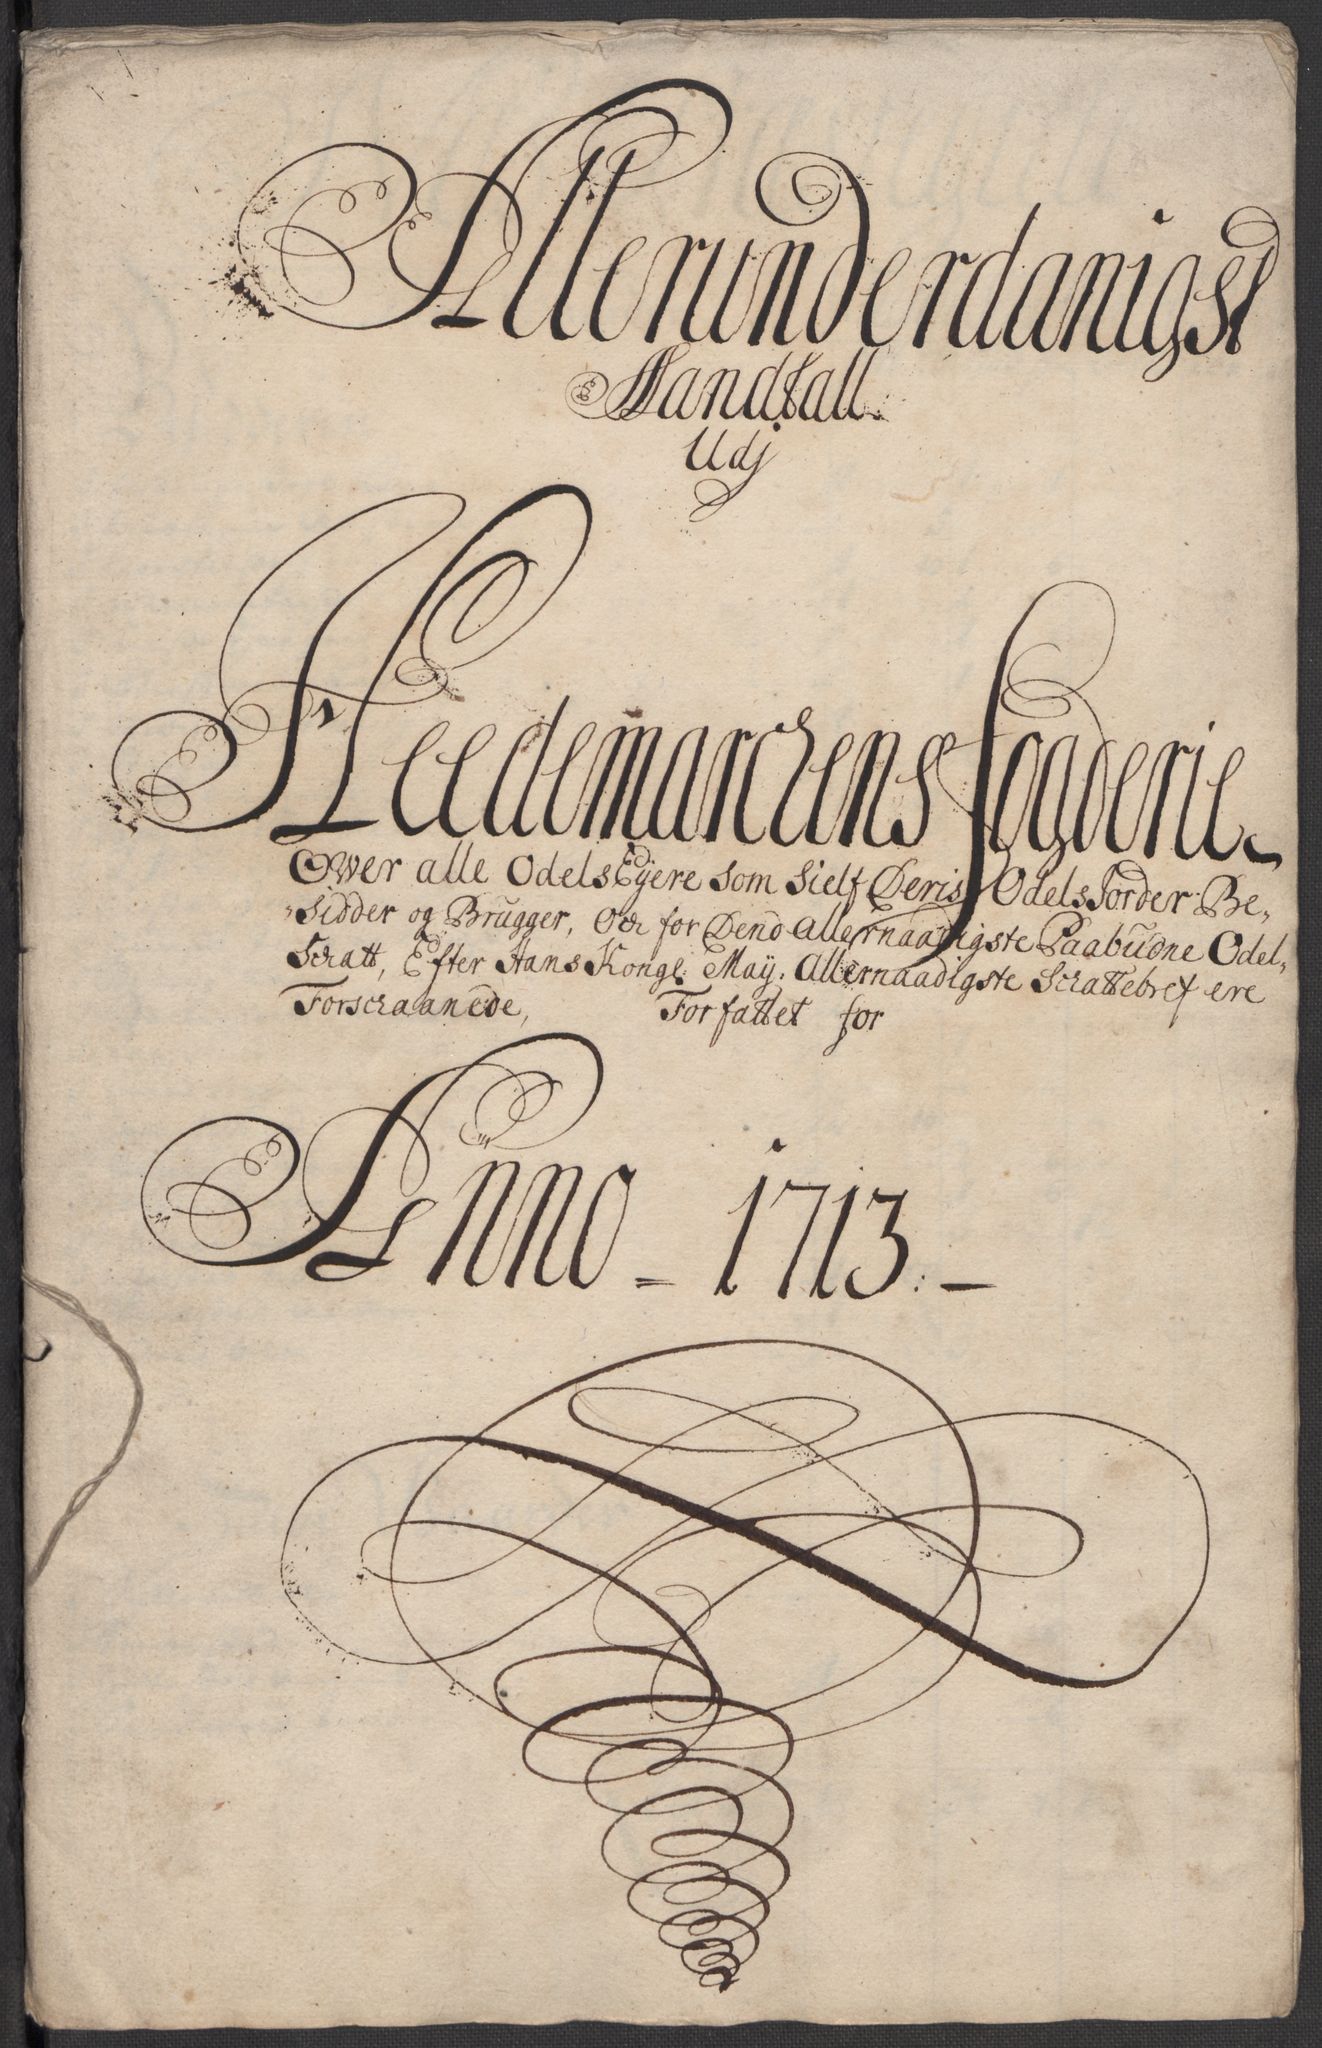 Allerunderdanigst
Mandtall
Udj
Heedemarchens fogderie
Over alle Odels Eÿere som sielf Deris Odels Jorder Be,
sidder og Brugger, och for Dend allernaadigste Paabudne Odel,
Schatt, Efter Hans Kongl: Maÿ: Allernaadigste Schattebref ere
Forschaanede, Forfattet for
Anno - 1713. -